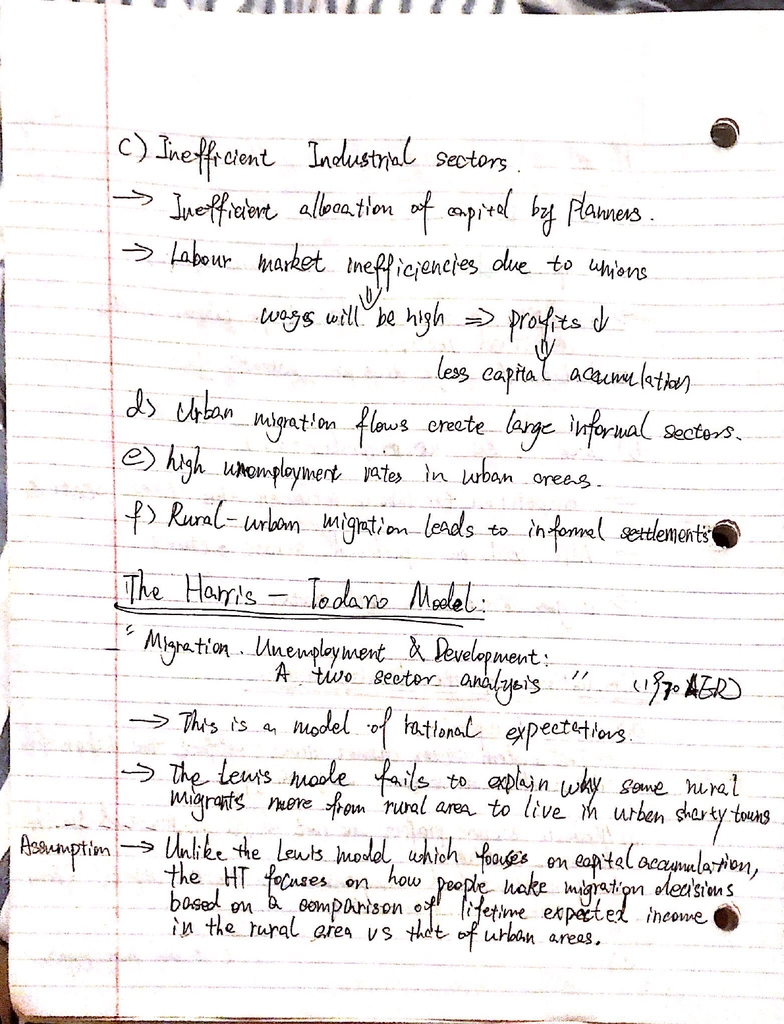 c) Inefficient Industrial sectors.
→ Inefficient allocation of capital by planners.
→ Labour market inefficiencies due to unions
⇓
wages will be high ⇒ profits ↓
⇓
less capital accumulation
d) Urban migration flows create large informal sectors.
e) high unemployment rates in urban areas.
f) Rural-urban migration leads to informal settlements
The Harris - Todaro Model:
"Migration. Unemployment & Development:
A two sector analysis" (1970 AER)
→ This is a model of rational expectations.
→ The Lewis mode fails to explain why some rural
migrants move from rural area to live in urban shanty towns
Assumption → Unlike the Lewis model, which focuses on capital accumulation,
the HT focuses on how people make migration decisions
based on a comparison of lifetime expected income
in the rural area vs that of urban areas.